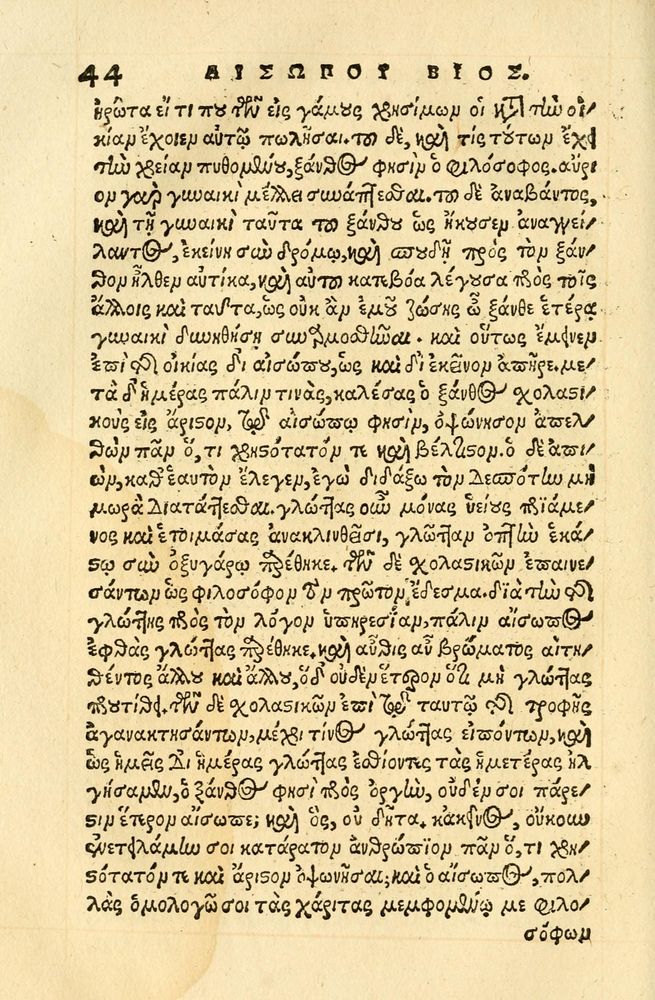 44 ΑΙΣΩΠΟΥ ΒΙΟΣ.
ἠρώτα εἴ τι που τῶν εἰς γάμους χρησίμων οἱ κατὰ τὴν οἰ-
κίαν ἔχοιεν αὐτῷ πωλῆσαι. τοῦ δὲ, καὶ τίς τούτων ἔχει
τὴν χρείαν πυθομένου, ξάνθος φησὶν ὁ φιλόσοφος. αὔρι-
ον γὰρ γυναικὶ μέλλει συνάπτεσθαι. τοῦ δὲ ἀναβάντος,
καὶ τῇ γυναικὶ ταῦτα τοῦ ξάνθου ὡς ἤκουσεν ἀναγγεί-
λαντος, ἐκείνη σὺν δρόμῳ, καὶ σπουδῇ πρὸς τὸν ξάν-
θον ἦλθεν αὐτίκα, καὶ αὐτοῦ κατεβόα λέγουσα πρὸς τοῖς
ἄλλοις καὶ ταῦτα, ὡς οὐκ ἂν ἐμοῦ ζώσης ὦ ξάνθε ἑτέρᾳ
γυναικὶ δυνηθήσῃ συναρμοσθῆναι. καὶ οὕτως ἔμεινεν
ἐπὶ τῆς οἰκίας δι αἰσώπου, ὡς καὶ δι ἐκεῖνον ἀπῆρε. με-
τὰ δ' ἡμέρας πάλιν τινὰς, καλέσας ὁ ξάνθος σχολαστι-
κοὺς εἰς ἄριστον, τῷ αἰσώπῳ φησὶν, ὀψώνησον ἀπελ-
θὼν πᾶν ὅ, τι χρηστότατόν τε καὶ βέλτιστον. ὁ δὲ ἀπι-
ὼν, καθ' ἑαυτὸν ἔλεγεν, ἐγὼ διδάξω τὸν δεσπότην μὴ
μωρὰ διατάττεσθαι. γλώττας οὖν μόνας ὑείους πριάμε-
νος καὶ ἑτοιμάσας ἀνακλινθεῖσι, γλῶτταν ὀπτὴν ἑκά-
στῳ σὺν ὀξυγάρῳ παρέθηκε. τῶν δὲ σχολαστικῶν ἐπαινε-
σάντων ὡς φιλοσόφον τὸν πρῶτον ἔδεσμα. διὰ τὴν τῆς
γλώττης πρὸς τὸν λόγον ὑπηρεσίαν, πάλιν αἴσωπος
ἑφθὰς γλώττας παρέθηκε. καὶ αὖθις αὖ βρώματος αἰτη-
θέντος ἄλλου καὶ ἄλλου, ὅδ' οὐδὲν ἕτερον ὅτι μὴ γλώττας
προυτίθει. τῶν δὲ σχολαστικῶν ἐπὶ τῷ ταυτῷ τῆς τροφῆς
ἀγανακτησάντων, μέχρι τίνος γλώττας εἰπόντων, καὶ
ὡς ἡμεῖς δι ἡμέρας γλώττας ἐσθίοντες τὰς ἡμετέρας ἠλ
γήσαμεν, ὁ ξάνθος φησὶ πρὸς ὀργὴν, οὐδέν σοι πάρε-
σιν ἕτερον αἴσωπε; καὶ ὃς, οὐ δῆτα. κἀκεῖνος, οὔκουν
ἐνετειλάμην σοι κατάρατον ἀνθρώπιον πᾶν ὅ, τι χρη-
στότατόν τε καὶ ἄριστον ὀψωνῆσαι; καὶ ὁ αἴσωπος, πολ-
λὰς ὁμολογῶ σοι τὰς χάριτας μεμφομένῳ με φιλο-
σόφων